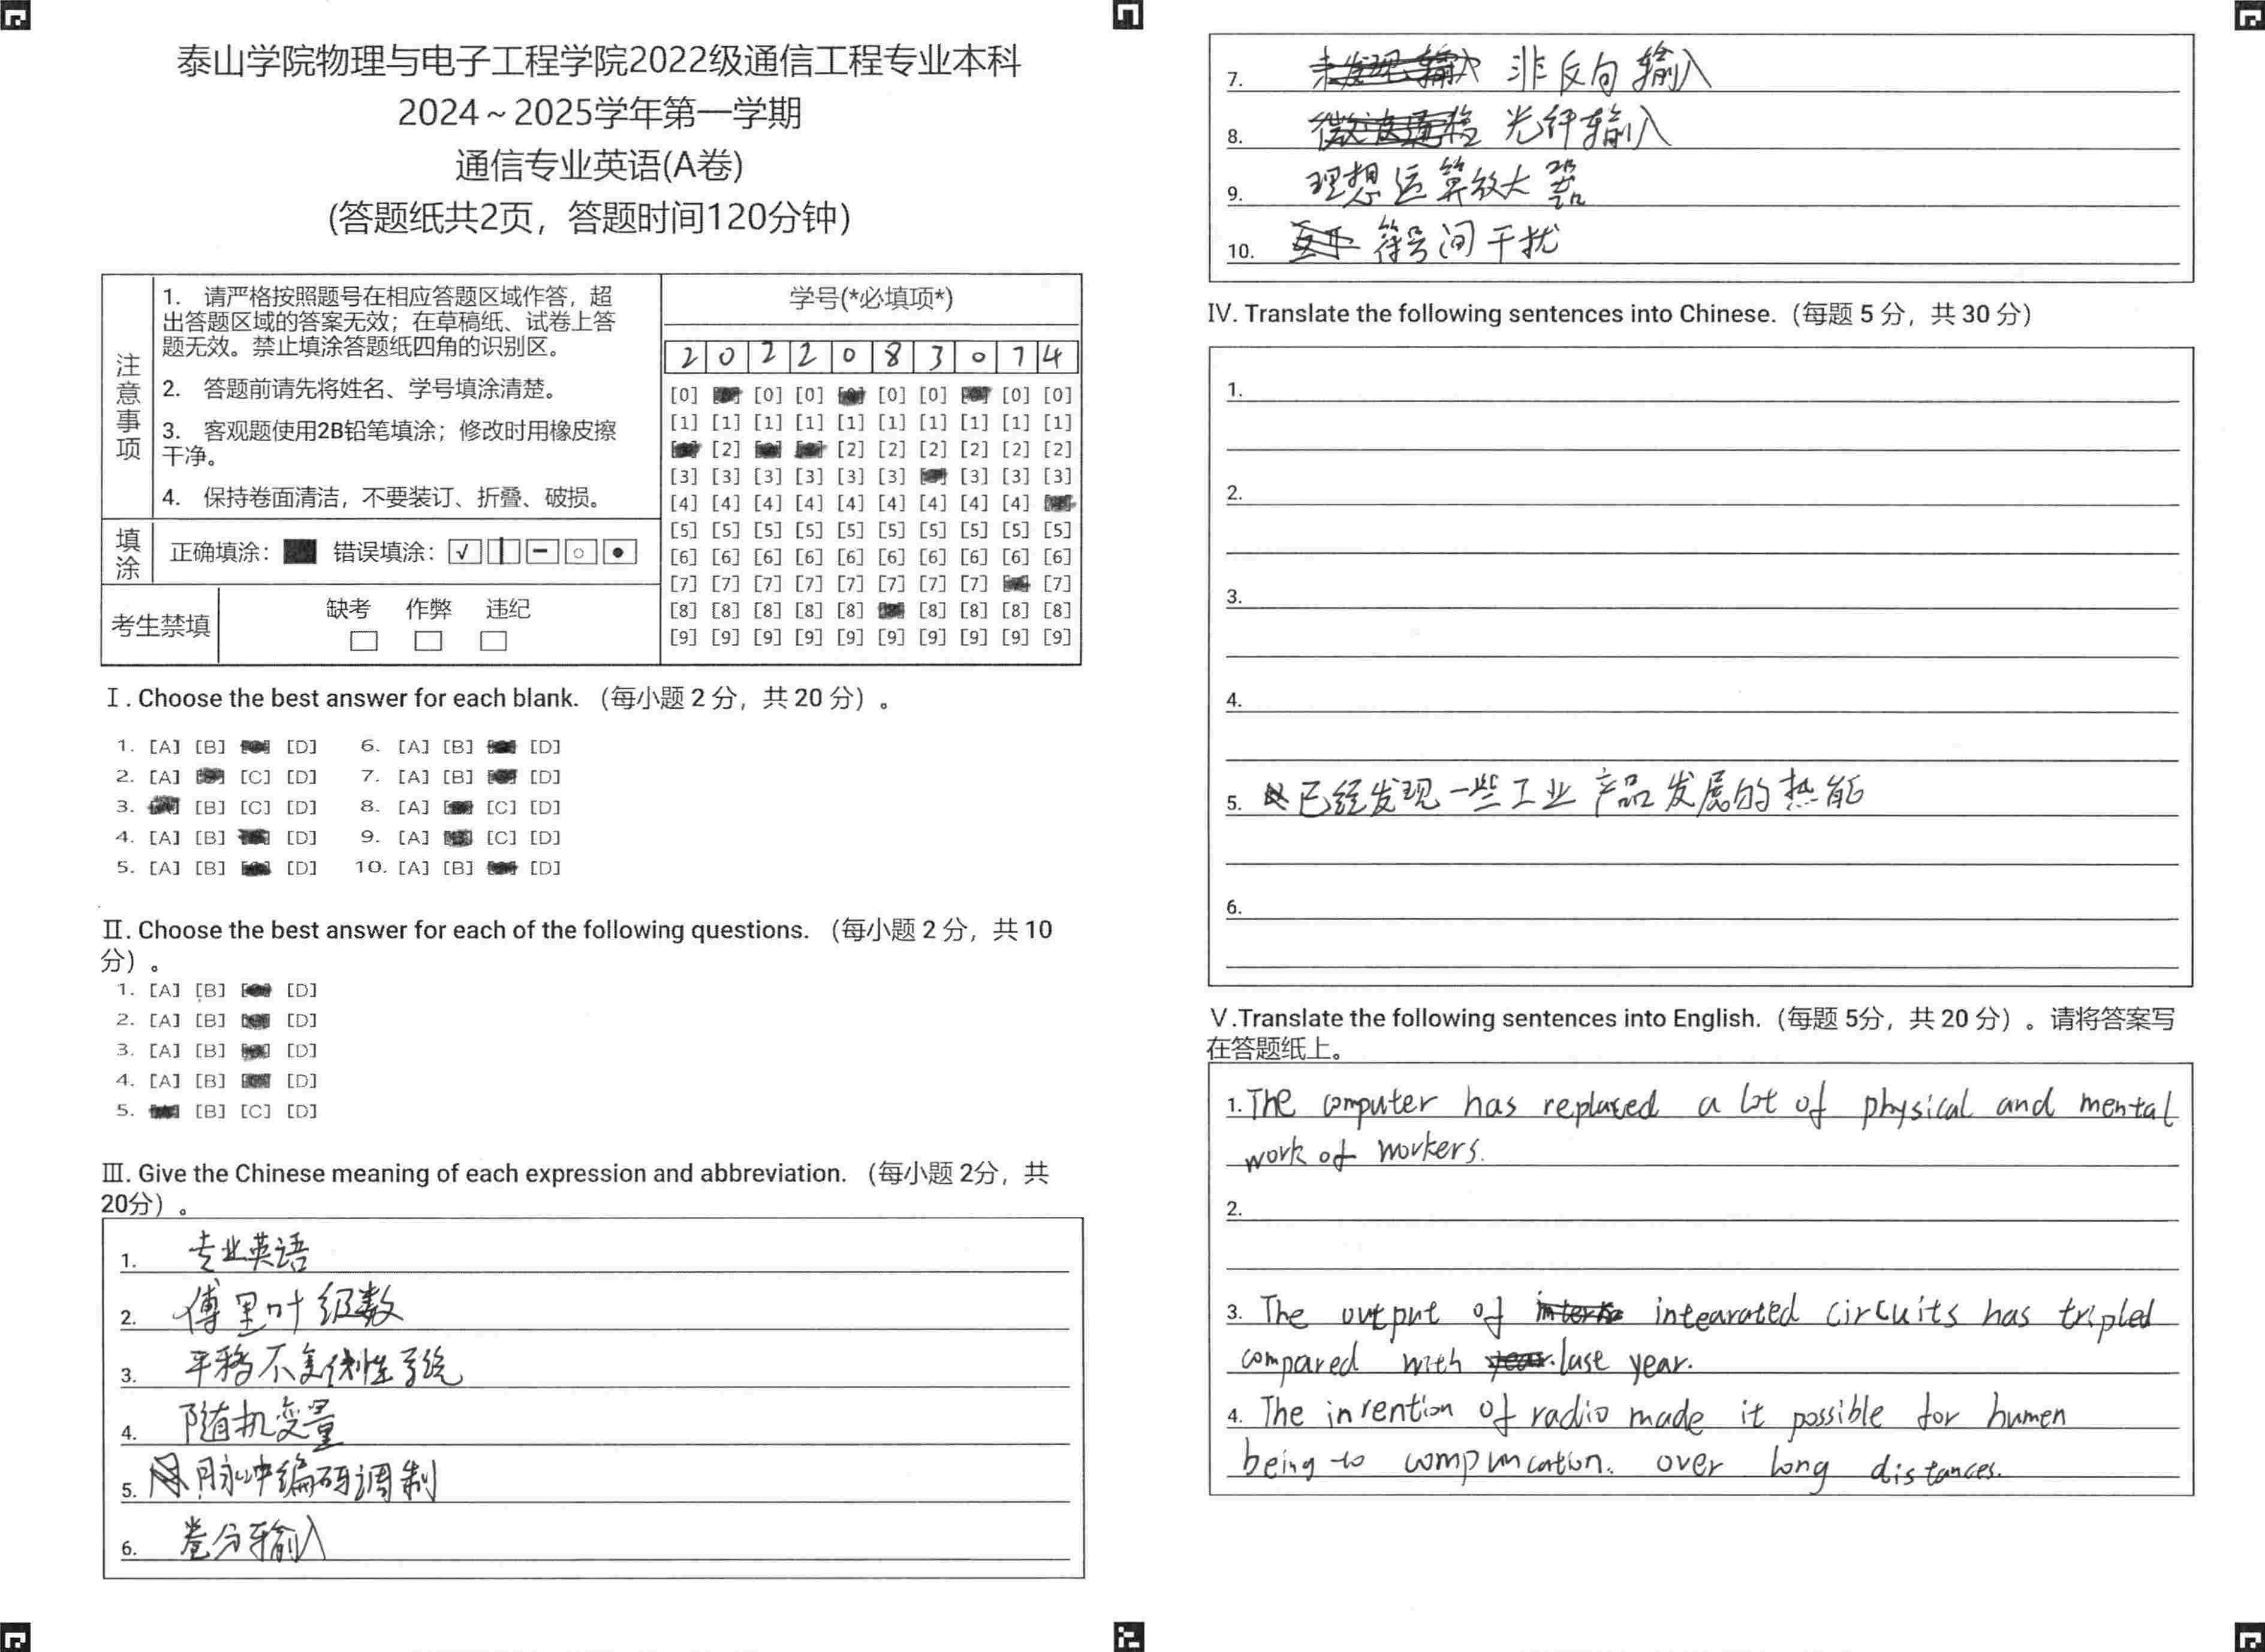 泰山学院物理与电子工程学院2022级通信工程专业本科
2024～2025学年第一学期
通信专业英语(A卷)
(答题纸共2页，答题时间120分钟)
注意事项
1. 请严格按照题号在相应答题区域作答，超
出答题区域的答案无效；在草稿纸、试卷上答
题无效。禁止填涂答题纸四角的识别区。
2. 答题前请先将姓名、学号填涂清楚。
3. 客观题使用2B铅笔填涂；修改时用橡皮擦
干净。
4. 保持卷面清洁，不要装订、折叠、破损。
填涂 正确填涂： 错误填涂：
考生禁填 缺考 作弊 违纪
学号(*必填项*)
2 0 2 2 0 8 3 0 7 4
[0] [0] [0] [0] [0] [0] [0]
[1] [1] [1] [1] [1] [1] [1] [1] [1] [1]
[2] [2] [2] [2] [2] [2] [2]
[3] [3] [3] [3] [3] [3] [3] [3] [3]
[4] [4] [4] [4] [4] [4] [4] [4] [4]
[5] [5] [5] [5] [5] [5] [5] [5] [5] [5]
[6] [6] [6] [6] [6] [6] [6] [6] [6] [6]
[7] [7] [7] [7] [7] [7] [7] [7] [7]
[8] [8] [8] [8] [8] [8] [8] [8] [8]
[9] [9] [9] [9] [9] [9] [9] [9] [9] [9]
Ⅰ. Choose the best answer for each blank. （每小题 2 分，共 20 分）。
1. [A] [B] [D] 6. [A] [B] [D]
2. [A] [C] [D] 7. [A] [B] [D]
3. [B] [C] [D] 8. [A] [C] [D]
4. [A] [B] [D] 9. [A] [C] [D]
5. [A] [B] [D] 10. [A] [B] [D]
Ⅱ. Choose the best answer for each of the following questions. （每小题 2 分，共 10
分）。
1. [A] [B] [D]
2. [A] [B] [D]
3. [A] [B] [D]
4. [A] [B] [D]
5. [B] [C] [D]
Ⅲ. Give the Chinese meaning of each expression and abbreviation. （每小题 2分，共
20分）。
1. 专业英语
2. 傅里叶级数
3. 平移不变线性系统
4. 随机变量
5. 脉冲编码调制
6. 差分输入
7. 非反向输入
8. 光纤输入
9. 理想运算放大器
10. 符号间干扰
Ⅳ. Translate the following sentences into Chinese.（每题 5 分，共 30 分）
1.
2.
3.
4.
5. 已经发现一些工业产品发展的热能
6.
Ⅴ.Translate the following sentences into English.（每题 5分，共 20 分）。请将答案写
在答题纸上。
1. The computer has replaced a lot of physical and mental
work of workers.
2.
3. The output of intearated circuits has tripled
compared with last year.
4. The invention of radio made it possible for humen
being to over long distances.